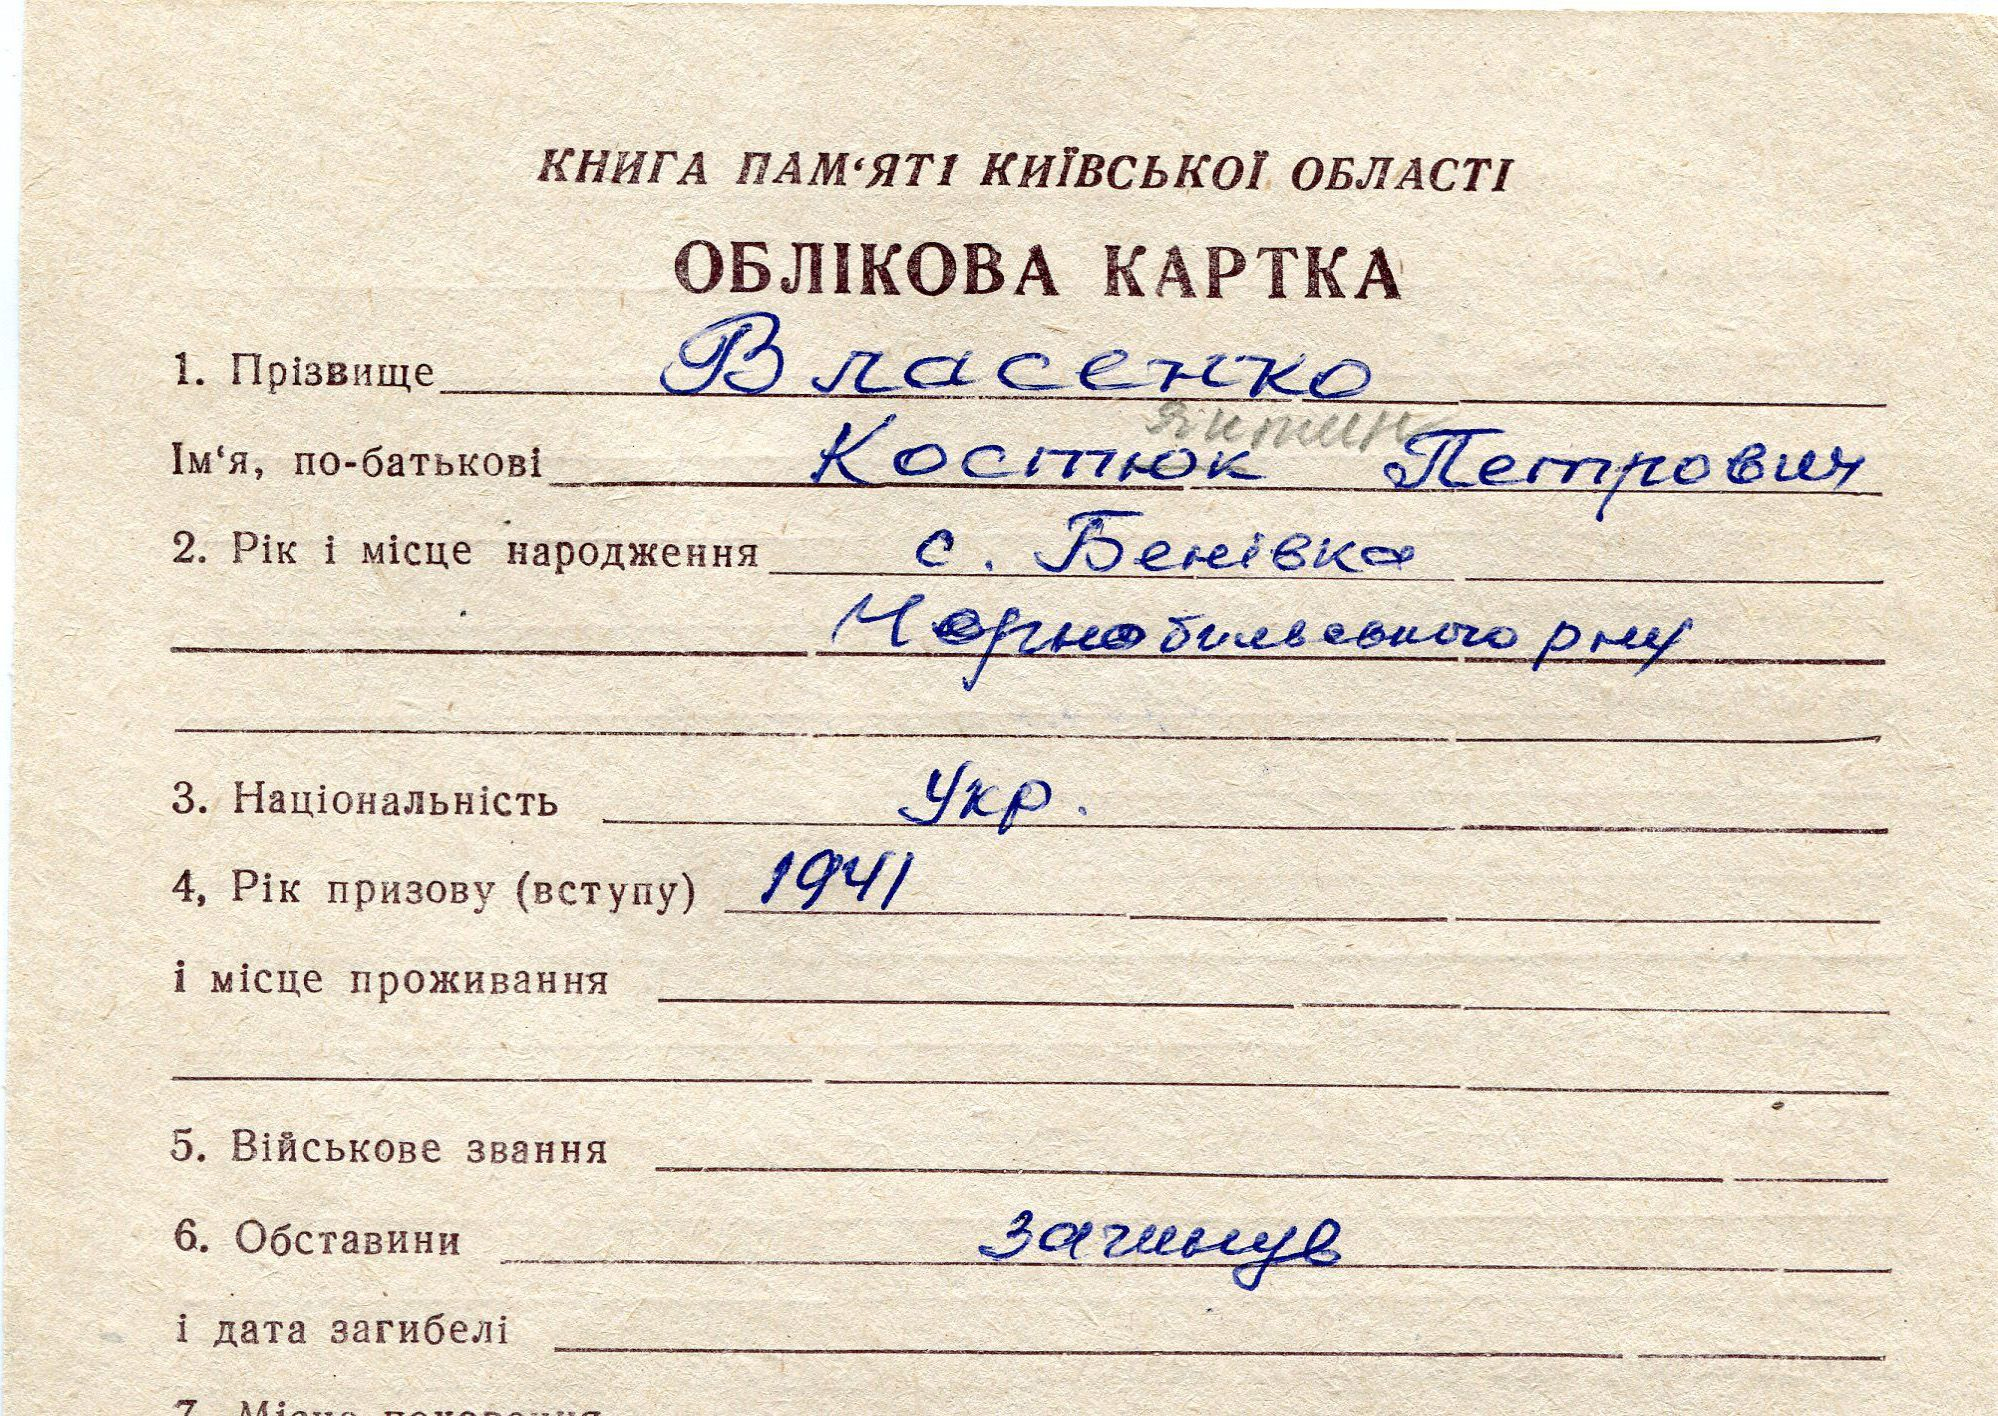 КНИГА ПАМ‘ЯТІ КИЇВСЬКОЇ ОБЛАСТІ
ОБЛІКОВА КАРТКА
1. Прізвище Власенко
Ім‘я, по-батькові Костюк Петрович
2. Рік і місце народження с. Бенівка
Чорнобильського р-ну
3. Національність Укр.
4, Рік призову (вступу) 1941
і місце проживання
5. Військове звання
6. Обставини загинув
і дата загибелі
7. Місце поховання